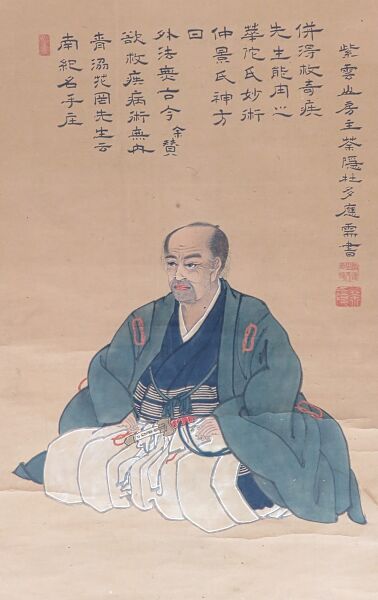 南紀名手庄
青洲花岡先生云
欲救疾病術無内
外法無古今 余賛
曰
仲景氏神方
華佗氏妙術
先生能用之
併得救奇疾
紫雲山房主茶隠杜多應需書